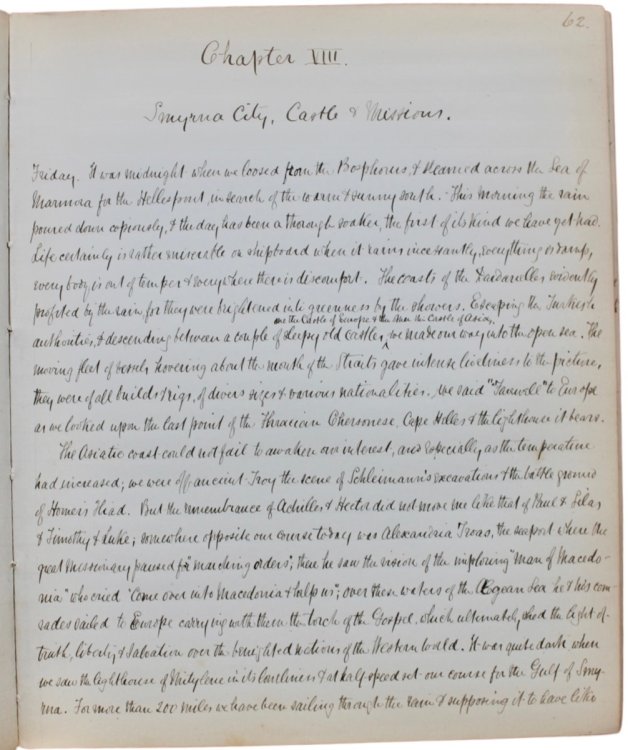 62.
Chapter VIII.
Smyrna City, Castle & Missions.
Friday. It was midnight when we loosed from the Bosphorus, & steamed across the Sea of
Marmora for the Hellespont, in search of the warm & sunny south. This morning the rain
poured down copiously, & the day has been a thorough soaker, the first of its kind we have yet had.
Life certainly is rather miserable on shipboard when it rains incessantly, everything is damp,
every body is out of temper & everywhere there is discomfort. The coasts of the Dardanelles evidently
profited by the rain for they were brightened into greenness by the showers. Escaping the Turkish
one the Castle of Europe & the other the Castle of Asia,
authorities, & descending between a couple of sleepy old castles, we made our way into the open sea. The
moving fleet of vessels hovering about the mouth of the Straits gave intense liveliness to the picture,
they were of all builds & rigs, of divers sizes & various nationalities. We said "Farewell" to Europe
as we looked upon the last point of the Thracian Chersonese, Cape Helles & the lighthouse it bears.
The Asiatic coast could not fail to awaken our interest, and especially as the temperature
had increased; we were off ancient Troy the scene of Schleimann's excavations & the battle ground
of Homer's Iliad. But the remembrance of Achilles & Hector did not move me like that of Paul & Silas
& Timothy & Luke; somewhere opposite our course today was Alexandria Troas, the seaport where the
great Missionary paused for "marching orders"; there he saw the vision of the imploring "Man of Macedo-
nia" who cried "Come over into Macedonia & help us"; over these waters of the Ægean Sea he & his com-
rades sailed to Europe carrying with them the torch of the Gospel, which ultimately, shed the light of
truth, liberty, & salvation over the benighted nations of the Western World. It was quite dark when
we saw the lighthouse of Mitylene in its loneliness & at half speed set our course for the Gulf of Smy-
rna. For more than 200 miles we have been sailing through the rain & supposing it to have like